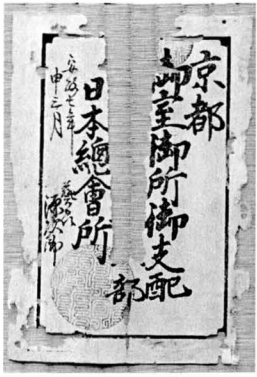 京都
御室御所御支配
部
日本總會所
安政七年
申三月